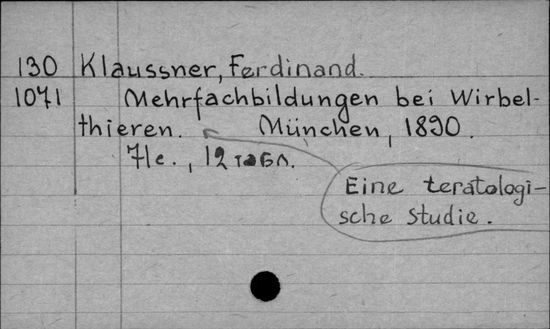 130 Klaussner, Ferdinand.
1071 Mehrfachbildungen bei Wirbel-
thieren. München, 1890.
71c., 12 табл.
Eine teratologi-
sche Studie.